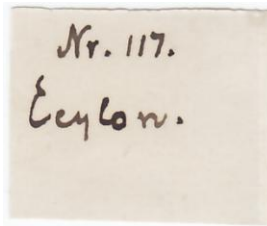 Nr. 117.
Ceylon.